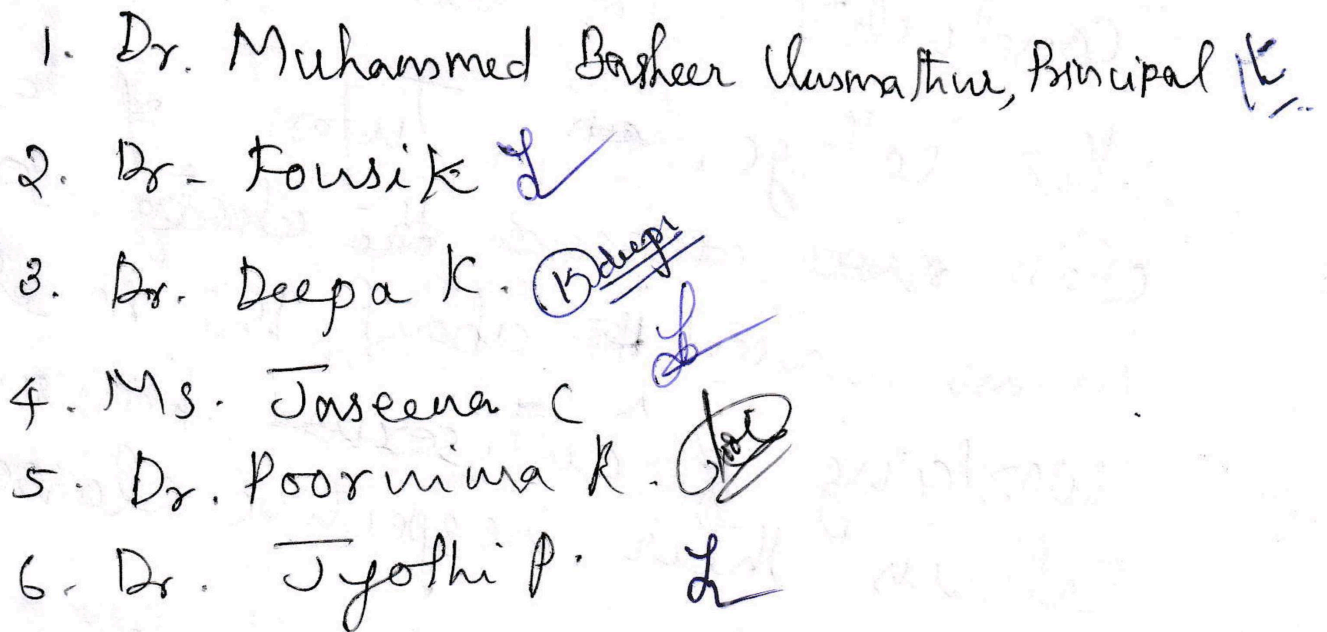 1. Dr. Muhammed Basheer Ummathur, Principal
2. Dr. Fousik
3. Dr. Deepa K. Kdeepa
4. Ms. Jaseena C
5. Dr. Poornima K.
6. Dr. Jyothi P.